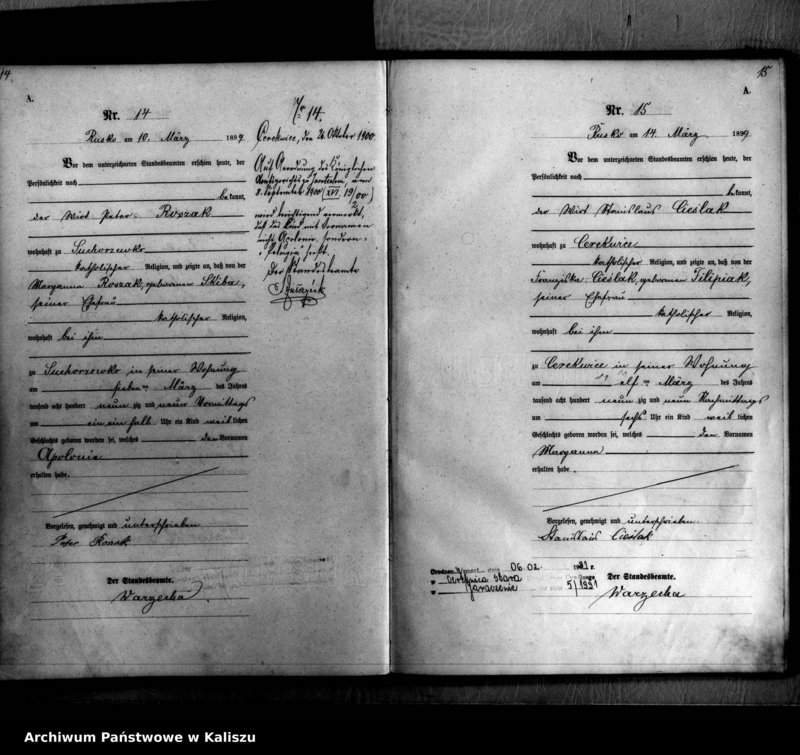 14
A.
Nr. 14
Rusko am 10. März 1899
Vor dem unterzeichneten Standesbeamten erschien heute, der
Persönlichkeit nach
bekannt,
der Wirt Peter Roszak
wohnhaft zu Suchorzewko
katholischer Religion, und zeigte an, daß von der
Maryanna Roszak, geborenen Skiba,
seiner Ehefrau
katholischer Religion,
wohnhaft bei ihm
zu Suchorzewko in seiner Wohnung
am sieben ten März des Jahres
tausend acht hundert neun zig und neun Vormittags
um ein ein halb Uhr ein Kind weiblichen
Geschlechts geboren worden sei, welches den Vornamen
Apolonia
erhalten habe.
Vorgelesen, genehmigt und unterschrieben
Peter Roszak
Der Standesbeamte.
Warzecha.
Nr 14.
Cerekwice, den 26 Oktober 1900.
Auf Anordnung des Königlichen
Amtsgerichts zu Jarotschin vom
8. September 1900 (XVI 19/00)
wird berichtigend vermerkt,
daß das Kind mit Vornamen
nicht Apolonia, sondern:
Pelagia heißt.
Der Standesbeamte
15
A.
Nr. 15
Rusko am 14. März 1899
Vor dem unterzeichneten Standesbeamten erschien heute, der
Persönlichkeit nach
bekannt,
der Wirt Stanislaus Cieślak
wohnhaft zu Cerekwice
katholischer Religion, und zeigte an, daß von der
Franziska Cieślak, geborenen Filipiak,
seiner Ehefrau
katholischer Religion,
wohnhaft bei ihm
zu Cerekwice in seiner Wohnung
am elf ten März des Jahres
tausend acht hundert neun zig und neun Nachmittags
um sechs Uhr ein Kind weiblichen
Geschlechts geboren worden sei, welches den Vornamen
Maryanna
erhalten habe.
Vorgelesen, genehmigt und unterschrieben.
Stanislais Cieślak
06.02.
Cerekwica Stara
Jaraczewie 5/1931
Der Standesbeamte.
Warzecha
Archiwum Państwowe w Kaliszu